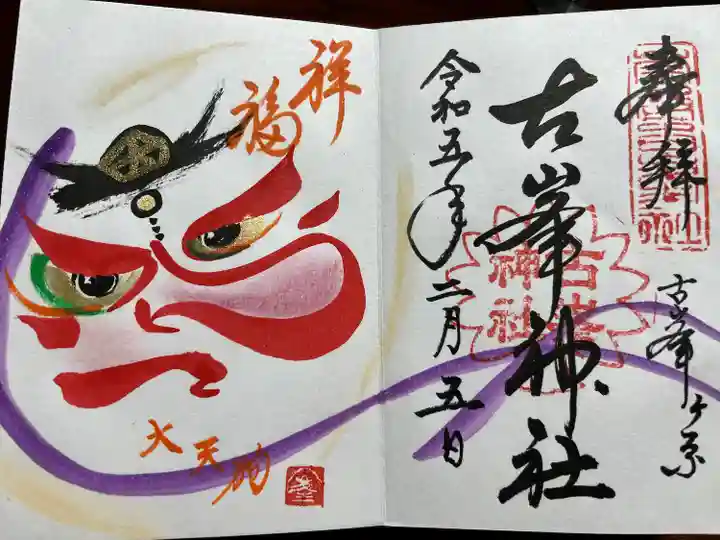 奉拝
古峯ヶ原
古峯神社
古峯神社
令和五年二月五日
祥福
大天狗